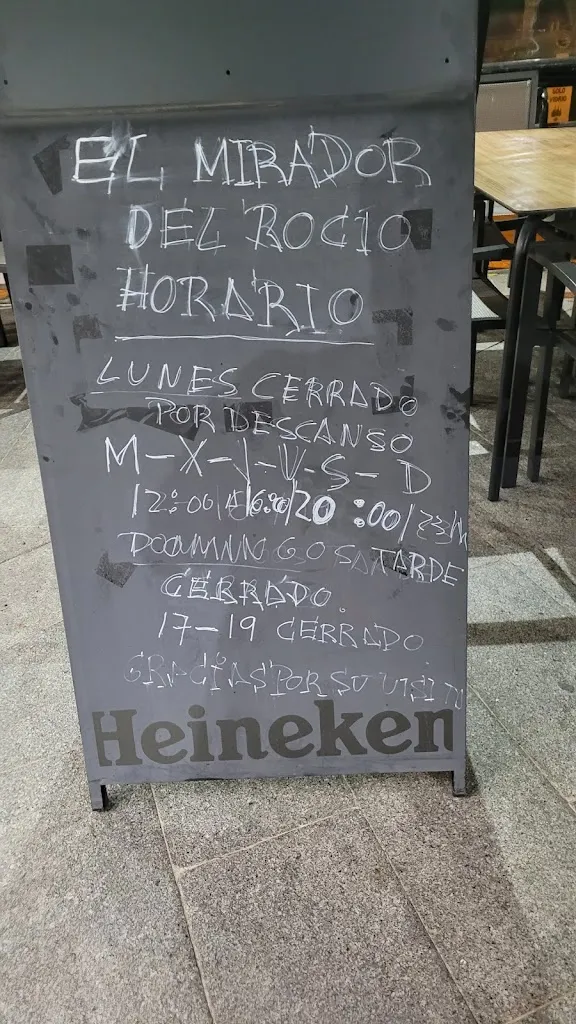 SOLO
VIDRIO
EL MIRADOR
DEL ROCIO
HORARIO
LUNES CERRADO
POR DESCANSO
M-X-J-V-S-D
12:00/16:00/20:00/23/
TARDE
CERRADO
17-19 CERRADO
GRACIAS POR SU VISITA
Heineken